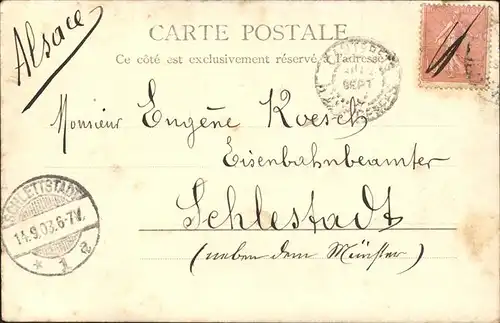 Alsace
CARTE POSTALE
Ce côté est exclusivement réservé à l'adresse
SEPT
Monsieur Eugène Koesch
Eisenbahnbeamter
Schlestadt
(neben dem Münster)
SCHLETTSTADT
14.9.03.6-7V.
* 1 a